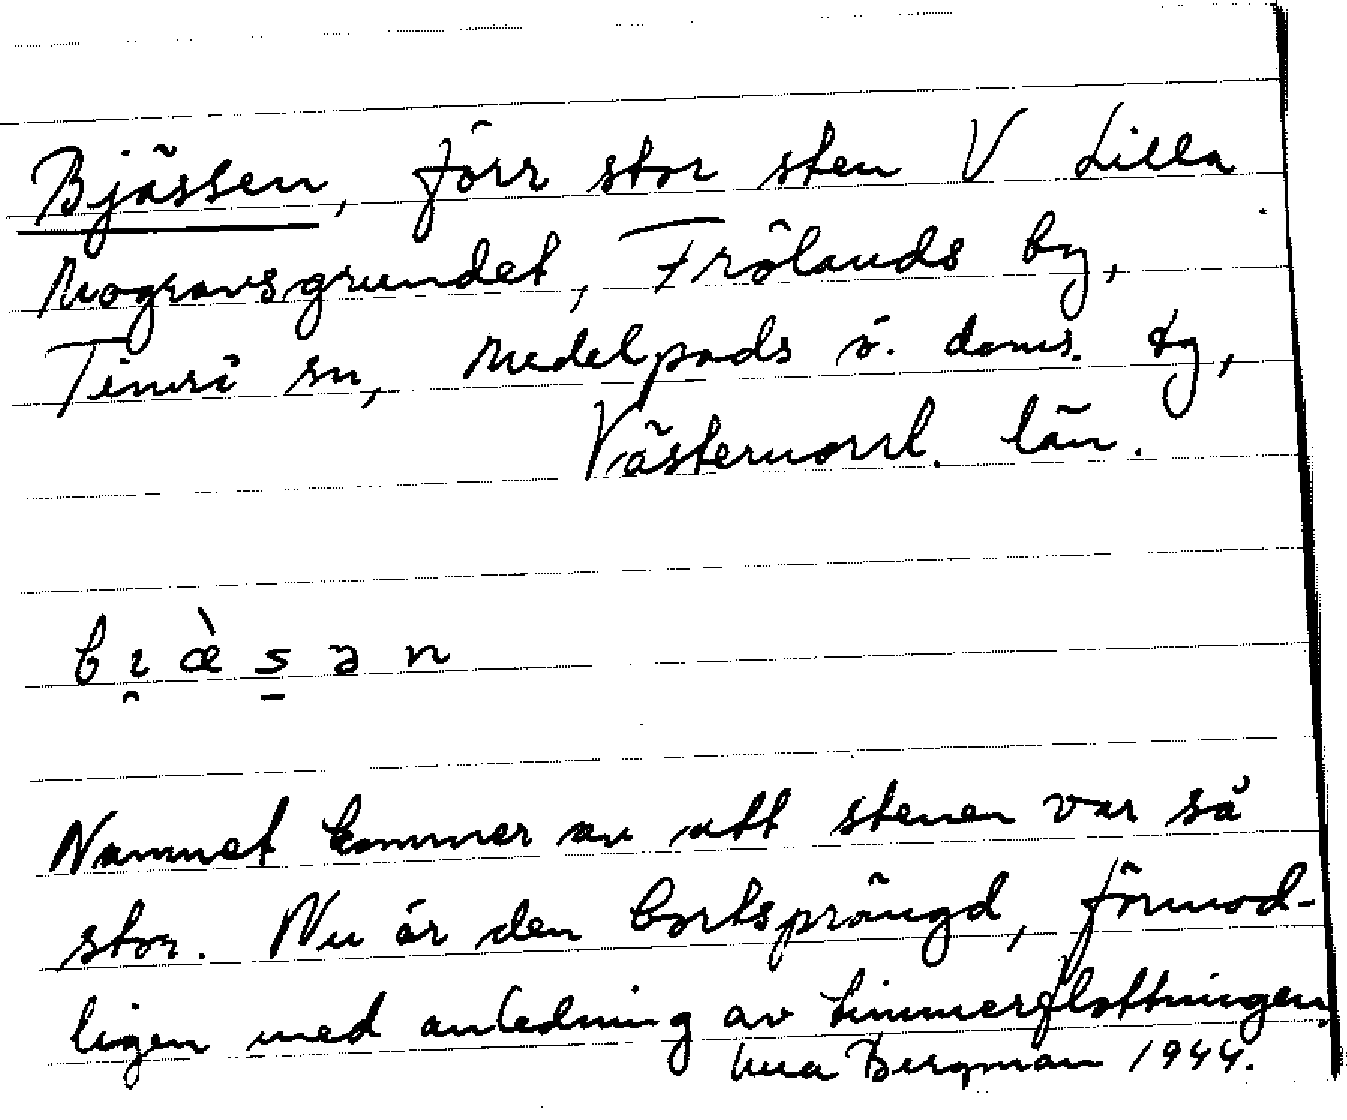 Bjässen, förr stor sten V Lilla
Mogravsgrundet, Frölands by,
Timrå sn, Medelpads ö. doms. tg,
Västernorrl. län.
bı̯æ̀s̠ən
Namnet kommer av att stenen var så
stor. Nu är den bortsprängd, förmod-
ligen med anledning av timmerflottningen.
Bergman 1944.